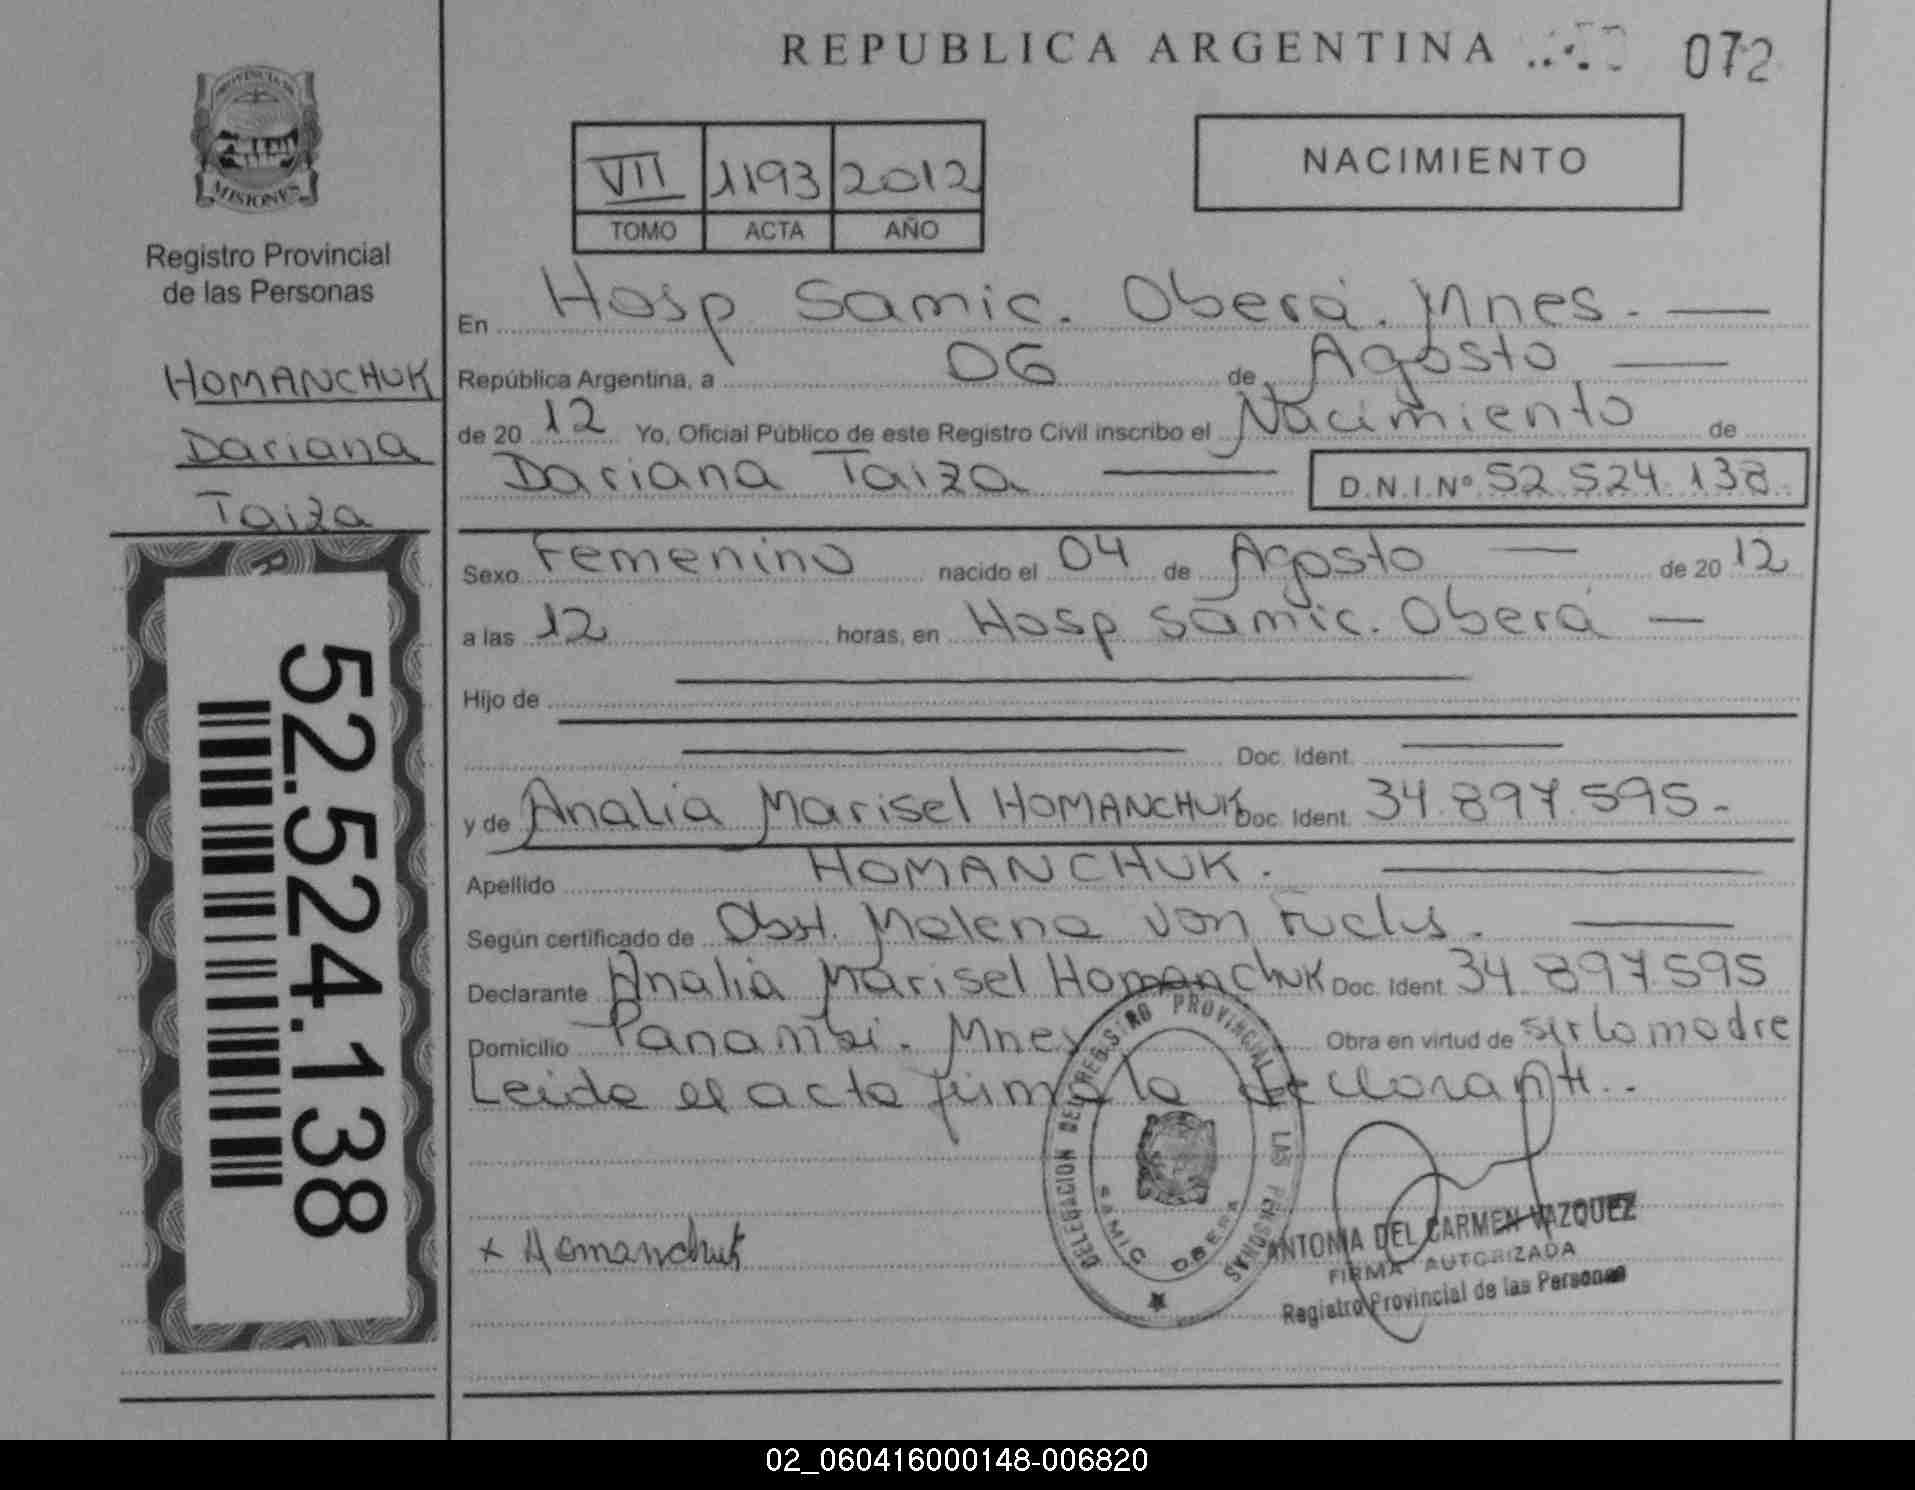 REPUBLICA ARGENTINA
072
PROVINCIA DE
MISIONES
Registro Provincial
de las Personas
HOMANCHUK
Dariana
Taiza
52.524.138
VII 1193 2012
TOMO ACTA AÑO
NACIMIENTO
En Hosp Samic. Oberá. Mnes.
República Argentina, a 06 de Agosto
de 20 12 Yo, Oficial Público de este Registro Civil inscribo el Nacimiento de
Dariana Taiza D.N.I.Nº 52.524.138
Sexo Femenino nacido el 04 de Agosto de 20 12
a las 12 horas, en Hosp Samic. Oberá
Hijo de
Doc. Ident.
y de Analia Marisel HOMANCHUK Doc. Ident. 34.897.595.-
Apellido HOMANCHUK.
Según certificado de Obst. Malena Von Fuchs.
Declarante Analia Marisel Homanchuk Doc. Ident. 34.897.595
Domicilio Panambi. Mnes Obra en virtud de ser la madre
Leida el acta firma la declarante.
DELEGACION DEL REGISTRO PROVINCIAL DE LAS PERSONAS
SAMIC OBERA
x Homanchuk
ANTONIA DEL CARMEN VAZQUEZ
FIRMA AUTORIZADA
Registro Provincial de las Personas
02_060416000148-006820